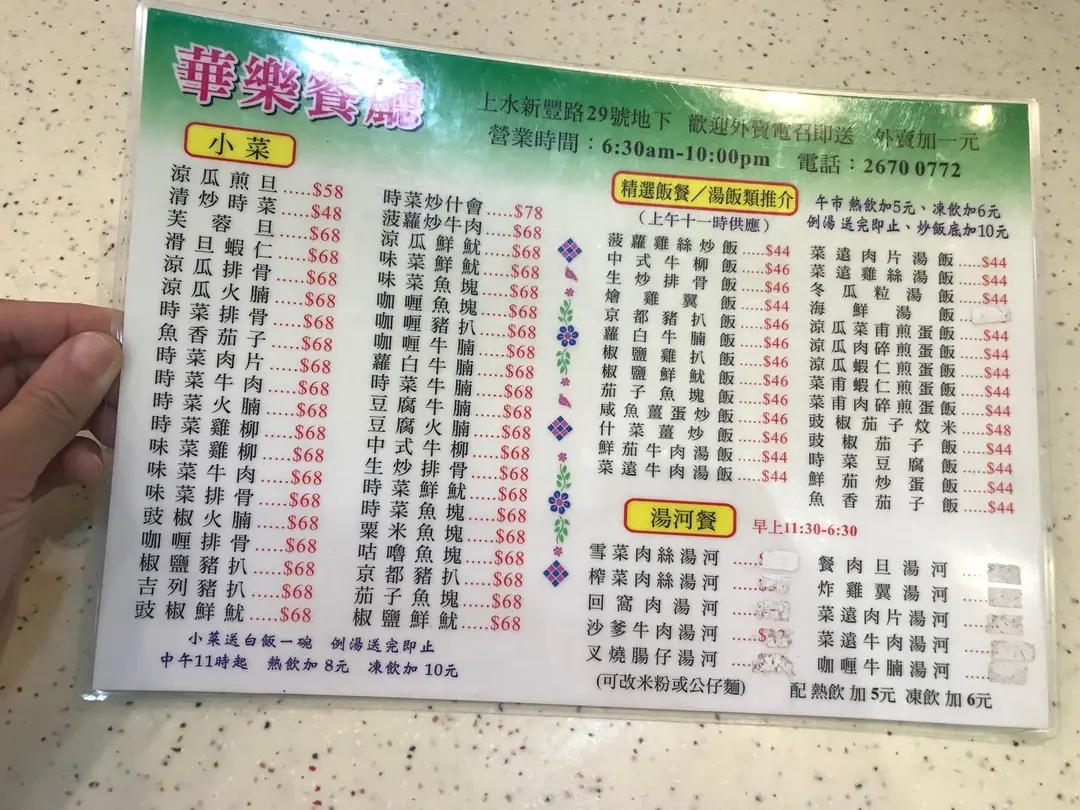 華樂餐廳
上水新豐路29號地下 歡迎外賣電召即送 外賣加一元
營業時間：6:30am-10:00pm 電話：2670 0772
小菜
涼瓜煎旦.....$58
清炒時菜.....$48
芙蓉旦.....$68
滑旦蝦仁.....$68
涼瓜排骨.....$68
涼瓜火腩.....$68
時菜排骨.....$68
魚香茄子.....$68
時菜肉片.....$68
時菜牛肉.....$68
時菜火腩.....$68
時菜雞柳.....$68
味菜雞柳.....$68
味菜牛肉.....$68
味菜排骨.....$68
豉椒火腩.....$68
咖喱排骨.....$68
椒鹽豬扒.....$68
吉列豬扒.....$68
豉椒鮮魷.....$68
時菜炒什會.....$78
菠蘿炒牛肉.....$68
涼瓜鮮魷.....$68
味菜鮮魷.....$68
味菜魚塊.....$68
咖喱魚塊.....$68
咖喱豬扒.....$68
咖喱牛腩.....$68
蘿白牛腩.....$68
時菜牛腩.....$68
豆腐火腩.....$68
中式牛柳.....$68
生炒排骨.....$68
時菜鮮魷.....$68
時菜魚塊.....$68
粟米魚塊.....$68
咕嚕魚塊.....$68
京都豬扒.....$68
茄子魚塊.....$68
椒鹽鮮魷.....$68
小菜送白飯一碗 例湯送完即止
中午11時起 熱飲加 8元 凍飲加 10元
精選飯餐／湯飯類推介
（上午十一時供應）
午市 熱飲加5元、凍飲加6元
例湯 送完即止、炒飯底加10元
菠蘿雞絲炒飯.....$44
中式牛柳飯.....$46
生炒排骨飯.....$46
燴雞翼飯.....$44
京都豬扒飯.....$46
蘿白牛腩飯.....$46
椒鹽雞扒飯.....$46
椒鹽鮮魷飯.....$46
茄子魚塊飯.....$46
咸魚薑蛋炒飯.....$46
什菜薑炒飯.....$46
鮮茄牛肉湯飯.....$44
菜遠牛肉湯飯.....$44
菜遠肉片湯飯.....$44
菜遠雞絲湯飯.....$44
冬瓜粒湯飯.....$44
海鮮湯飯.....
涼瓜菜甫煎蛋飯.....$44
涼瓜肉碎煎蛋飯.....$44
涼瓜蝦仁煎蛋飯.....$44
菜甫蝦仁煎蛋飯.....$44
菜甫肉碎煎蛋飯.....$44
豉椒茄子炆米.....$48
豉椒茄子飯.....$44
時菜豆腐飯.....$44
鮮茄炒蛋飯.....$44
魚香茄子飯.....$44
湯河餐 早上11:30-6:30
雪菜肉絲湯河.....$
榨菜肉絲湯河.....
回窩肉湯河.....
沙爹牛肉湯河.....$
叉燒腸仔湯河.....
(可改米粉或公仔麵)
餐肉旦湯河.....
炸雞翼湯河.....
菜遠肉片湯河.....
菜遠牛肉湯河.....
咖喱牛腩湯河.....
配 熱飲 加 5元 凍飲 加 6元